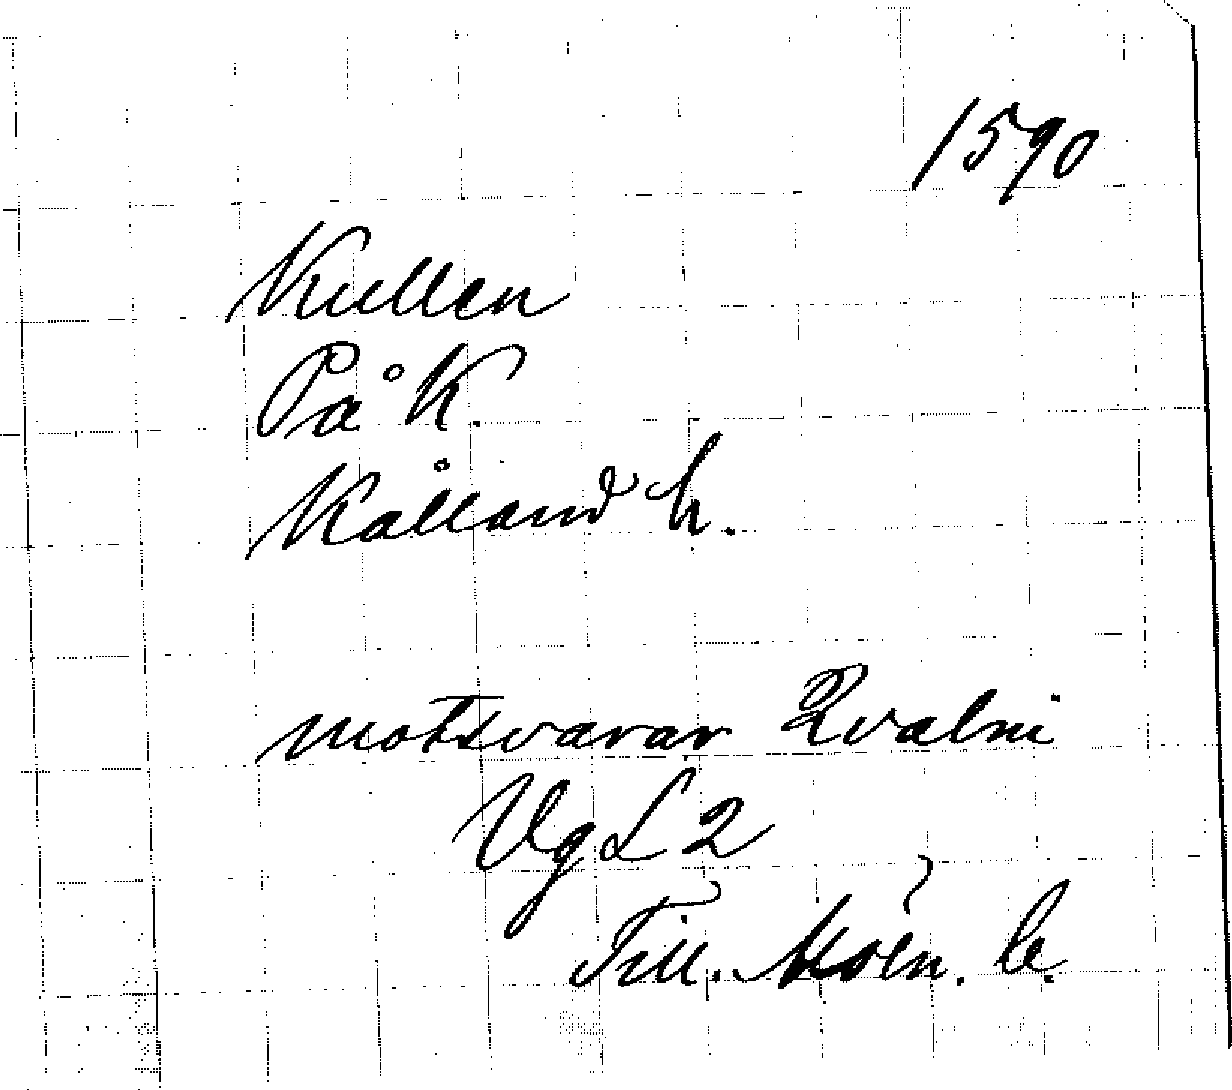 1590
Kullen
På K
Kålland h.
motsvarar Qvalni
Vg L 2
Till.